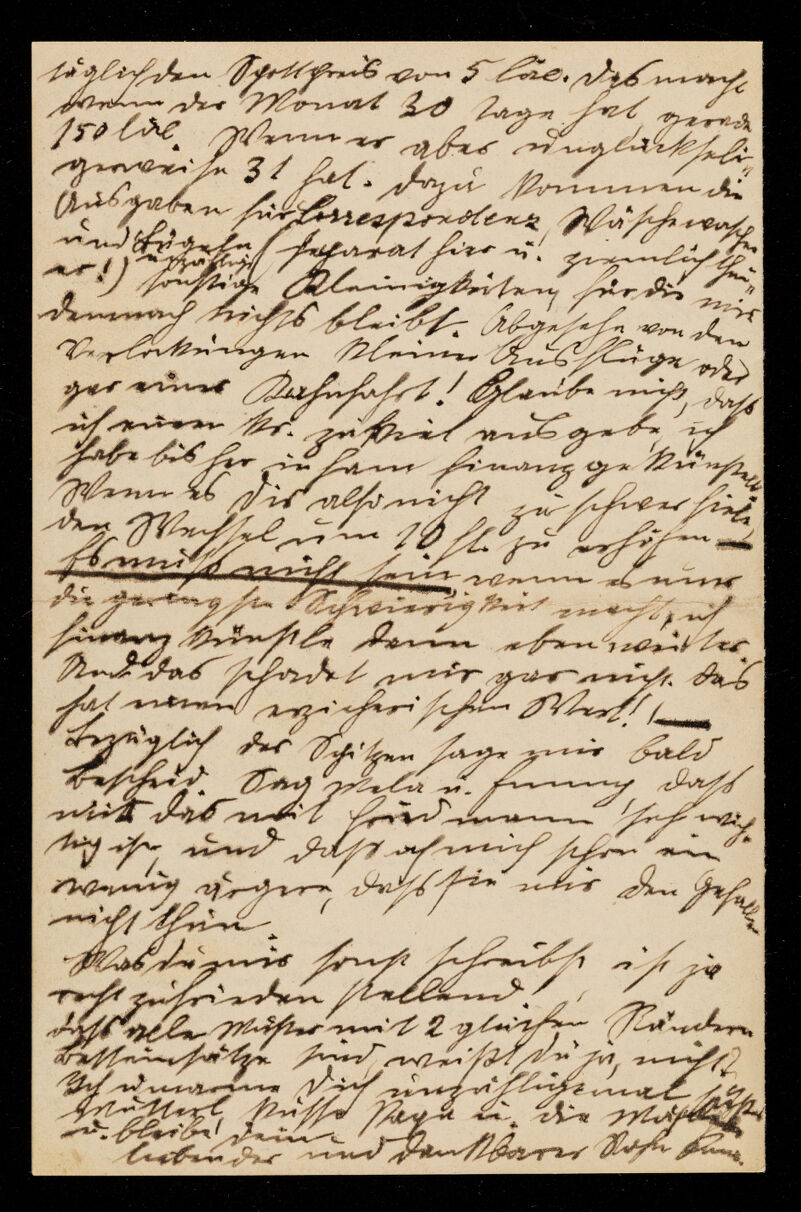 täglich den Spottpreis von 5 Läe. Das macht
wenn der Monat 30 Tage hat, gerade
150 Läe. Wenn er aber unglücksseli-
gerweise 31 hat. Dazu kommen die
Ausgaben für Correspondenz, Wäschewaschen
und Bügeln (separat hier u. ziemlich theu-
er!) unzählige sonstige Kleinigkeiten, für die mir
demnach nichts bleibt. Abgesehn von den
Verlockungen kleiner Ausflüge oder
gar einer Bahnfahrt! Glaube nicht, dass
ich einen Kr. zuviel ausgebe, ich
habe bisher infam finanzgekünstelt.
Wenn es Dir also nicht zu schwer fiele,
den Wechsel um 10 fl. zu erhöhen —
Es muß nicht sein wenn es nur
die geringste Schwierigkeit macht, ich
finanzkünstle dann eben weiter.
Und das schadet mir gar nicht. Das
hat einen erzieherischen Wert! —
Bezüglich der Spitzen sage mir bald
Bescheid. Sag Mela u. Emmy, dass
mir das mit Friedmann sehr wich-
tig ist, und dass ich mich schon ein
wenig ärgere, dass sie mir den Gefallen
nicht thun.
Was du mir sonst schreibst ist ja
recht zufrieden stellend.
dass alle Muster mit 2 gleichen Rändern
Betteinsätze sind, weißt du ja, nicht?
Ich umarme Dich unzähligemal
Mutterl, küsse Papa u. die
u. bleibe dein
liebender und dankbarer Sohn